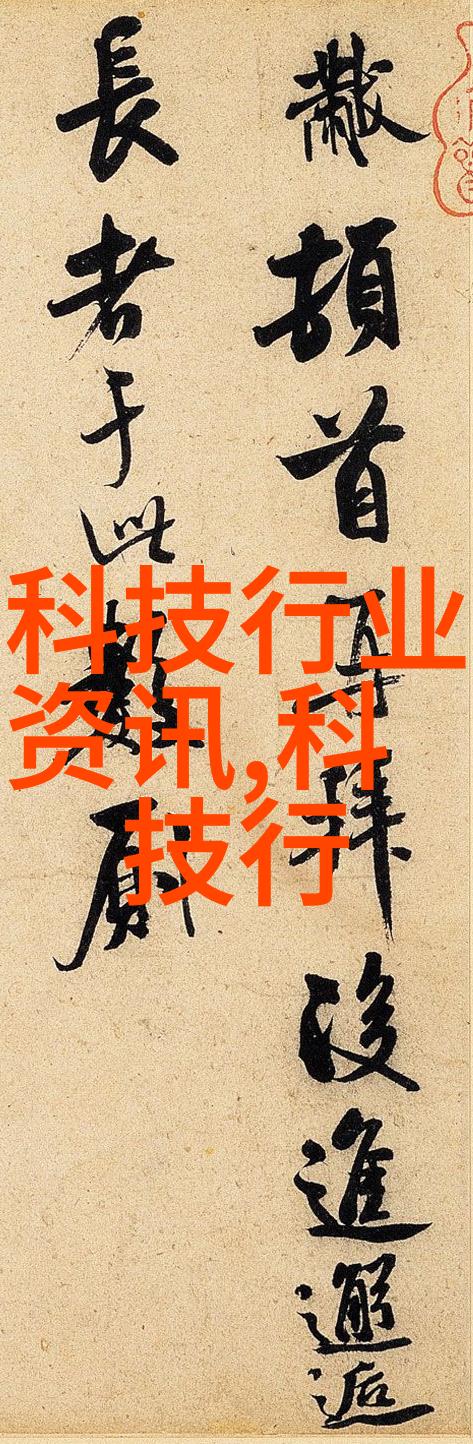 黻頓首再拜後進邂逅
長者于此
科技行业
资讯,科
技行